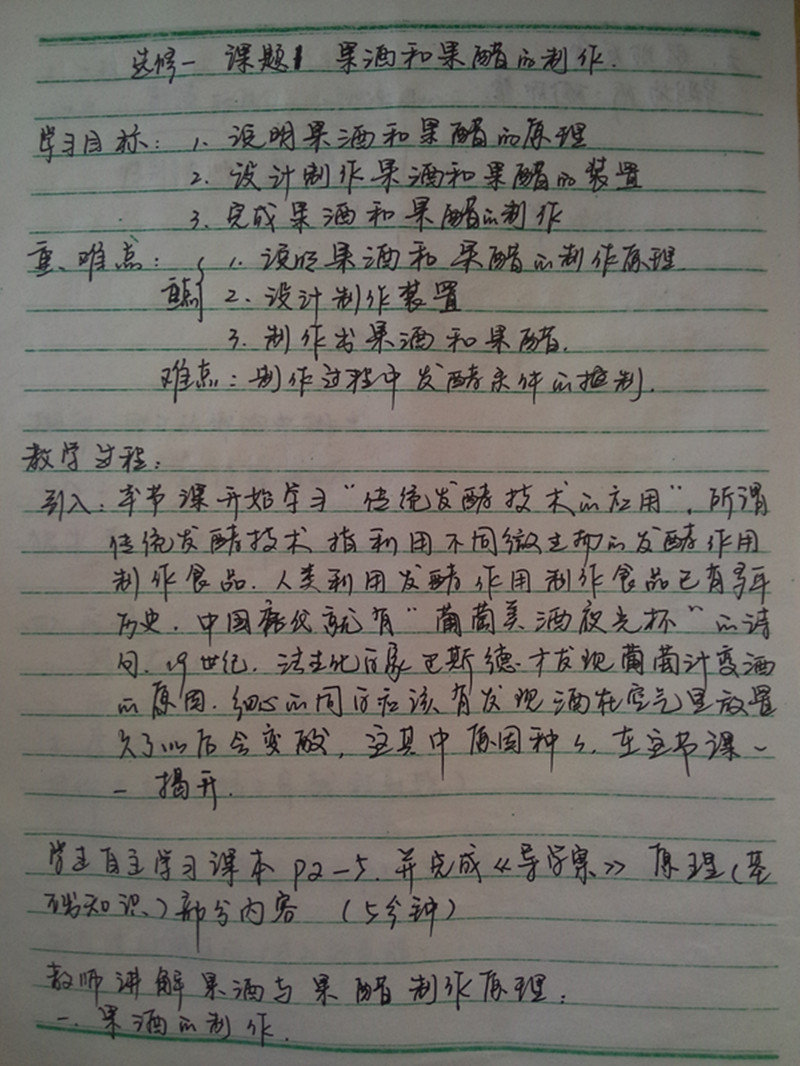 选修一 课题1 果酒和果醋的制作.
学习目标：1. 说明果酒和果醋的原理
2. 设计制作果酒和果醋的装置
3. 完成果酒和果醋的制作
重、难点：1. 说明果酒和果醋的制作原理
重点 2. 设计制作装置
3. 制作出果酒和果醋.
难点：制作过程中发酵条件的控制.
教学过程：
引入：本节课开始学习“传统发酵技术的应用”. 所谓
传统发酵技术指利用不同微生物的发酵作用
制作食品. 人类利用发酵作用制作食品已有多年
历史. 中国唐代就有“葡萄美酒夜光杯”的诗
句. 19世纪. 法生化学家巴斯德才发现葡萄汁变酒
的原因. 细心的同学应该有发现酒在空气里放置
久了以后会变酸, 这其中原因种々. 在这节课一
一揭开.
学生自主学习课本P2-5. 并完成《导学案》原理(基
础知识)部分内容 (5分钟)
教师讲解果酒与果醋制作原理：
一. 果酒的制作.